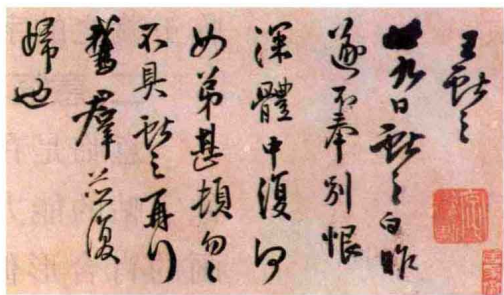 王獻之
廿九日獻之白昨
遂不奉別恨
深體中復何
如弟甚頓勿勿
不具獻之再拜
鵞羣並復
歸也